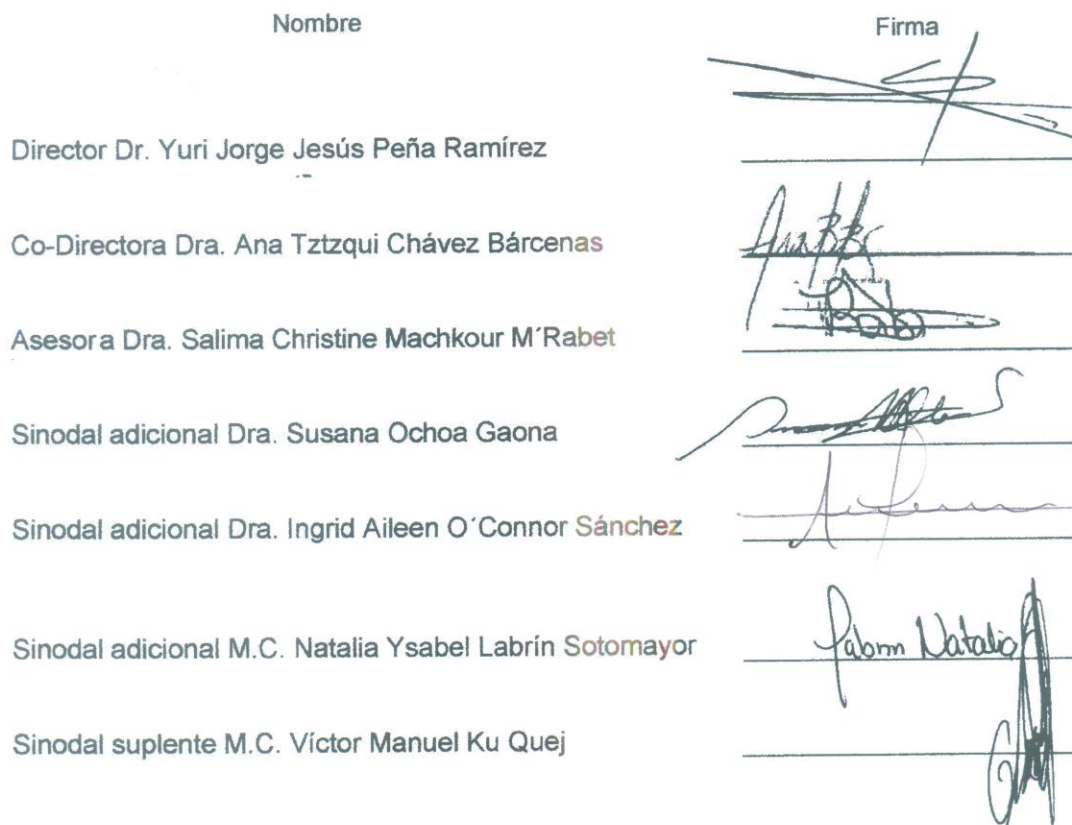 Nombre Firma
Director Dr. Yuri Jorge Jesús Peña Ramírez
Co-Directora Dra. Ana Tztzqui Chávez Bárcenas
Asesora Dra. Salima Christine Machkour M´Rabet
Sinodal adicional Dra. Susana Ochoa Gaona
Sinodal adicional Dra. Ingrid Aileen O´Connor Sánchez
Sinodal adicional M.C. Natalia Ysabel Labrín Sotomayor Labrin Natalia
Sinodal suplente M.C. Víctor Manuel Ku Quej